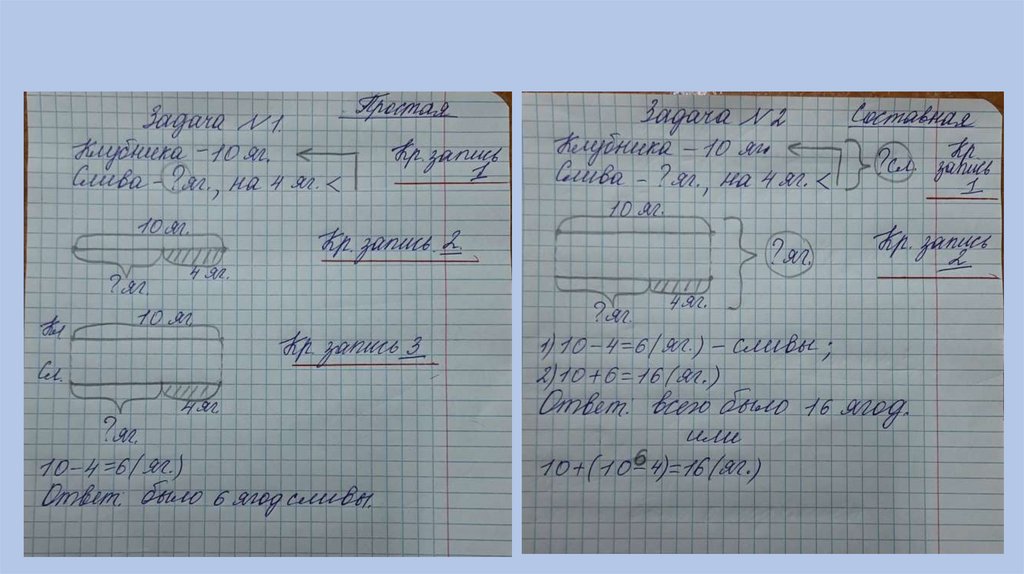 Задача N1. Простая
Клубника - 10 яг.
Слива - ? яг., на 4 яг. <
Кр. запись
1
10 яг.
4 яг.
? яг.
Кр. запись 2.
10 яг
Кл
Сл.
4 яг
? яг.
Кр. запись 3
10 - 4 = 6 (яг.)
Ответ: было 6 ягод сливы.
Задача N2 Составная
Клубника - 10 яг.
Слива - ? яг., на 4 яг. <
? сл.
Кр
запись
1
10 яг.
? яг.
4 яг.
? яг.
Кр. запись
2
1) 10 - 4 = 6 (яг.) - сливы;
2) 10 + 6 = 16 (яг.)
Ответ: всего было 16 ягод.
или
6
10 + (10 - 4) = 16 (яг.)